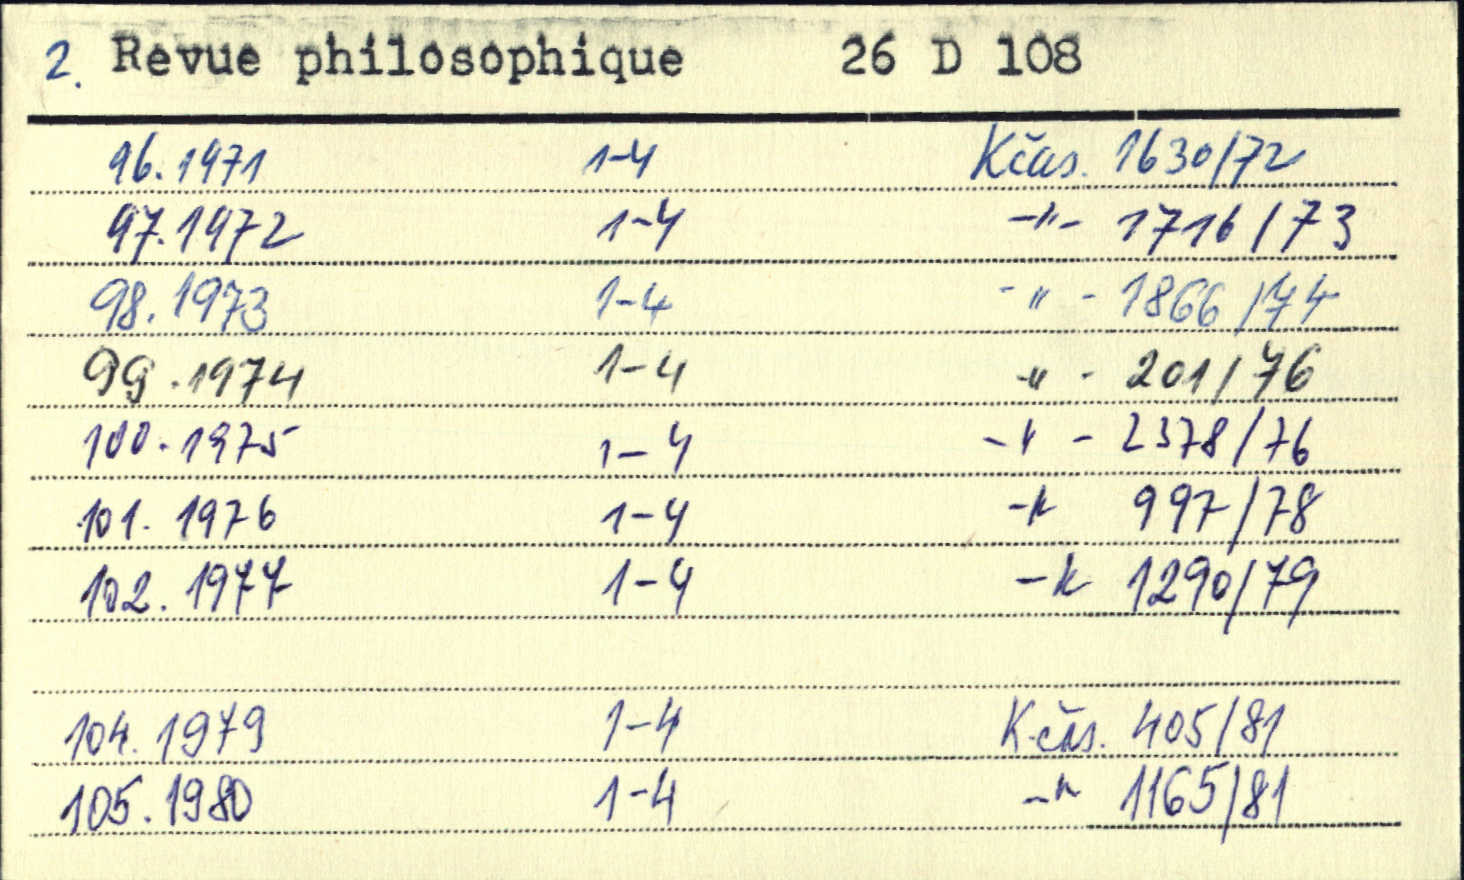 2. Revue philosophique 26 D 108
96.1971 1-4 Kčas. 1630/72
97.1972 1-4 -"- 1716/73
98.1973 1-4 -"- 1866/74
99.1974 1-4 -"- 201/76
100.1975 1-4 -"- 2378/76
101.1976 1-4 -"- 997/78
102.1977 1-4 -"- 1290/79
104.1979 1-4 Kčas. 405/81
105.1980 1-4 -"- 1165/81